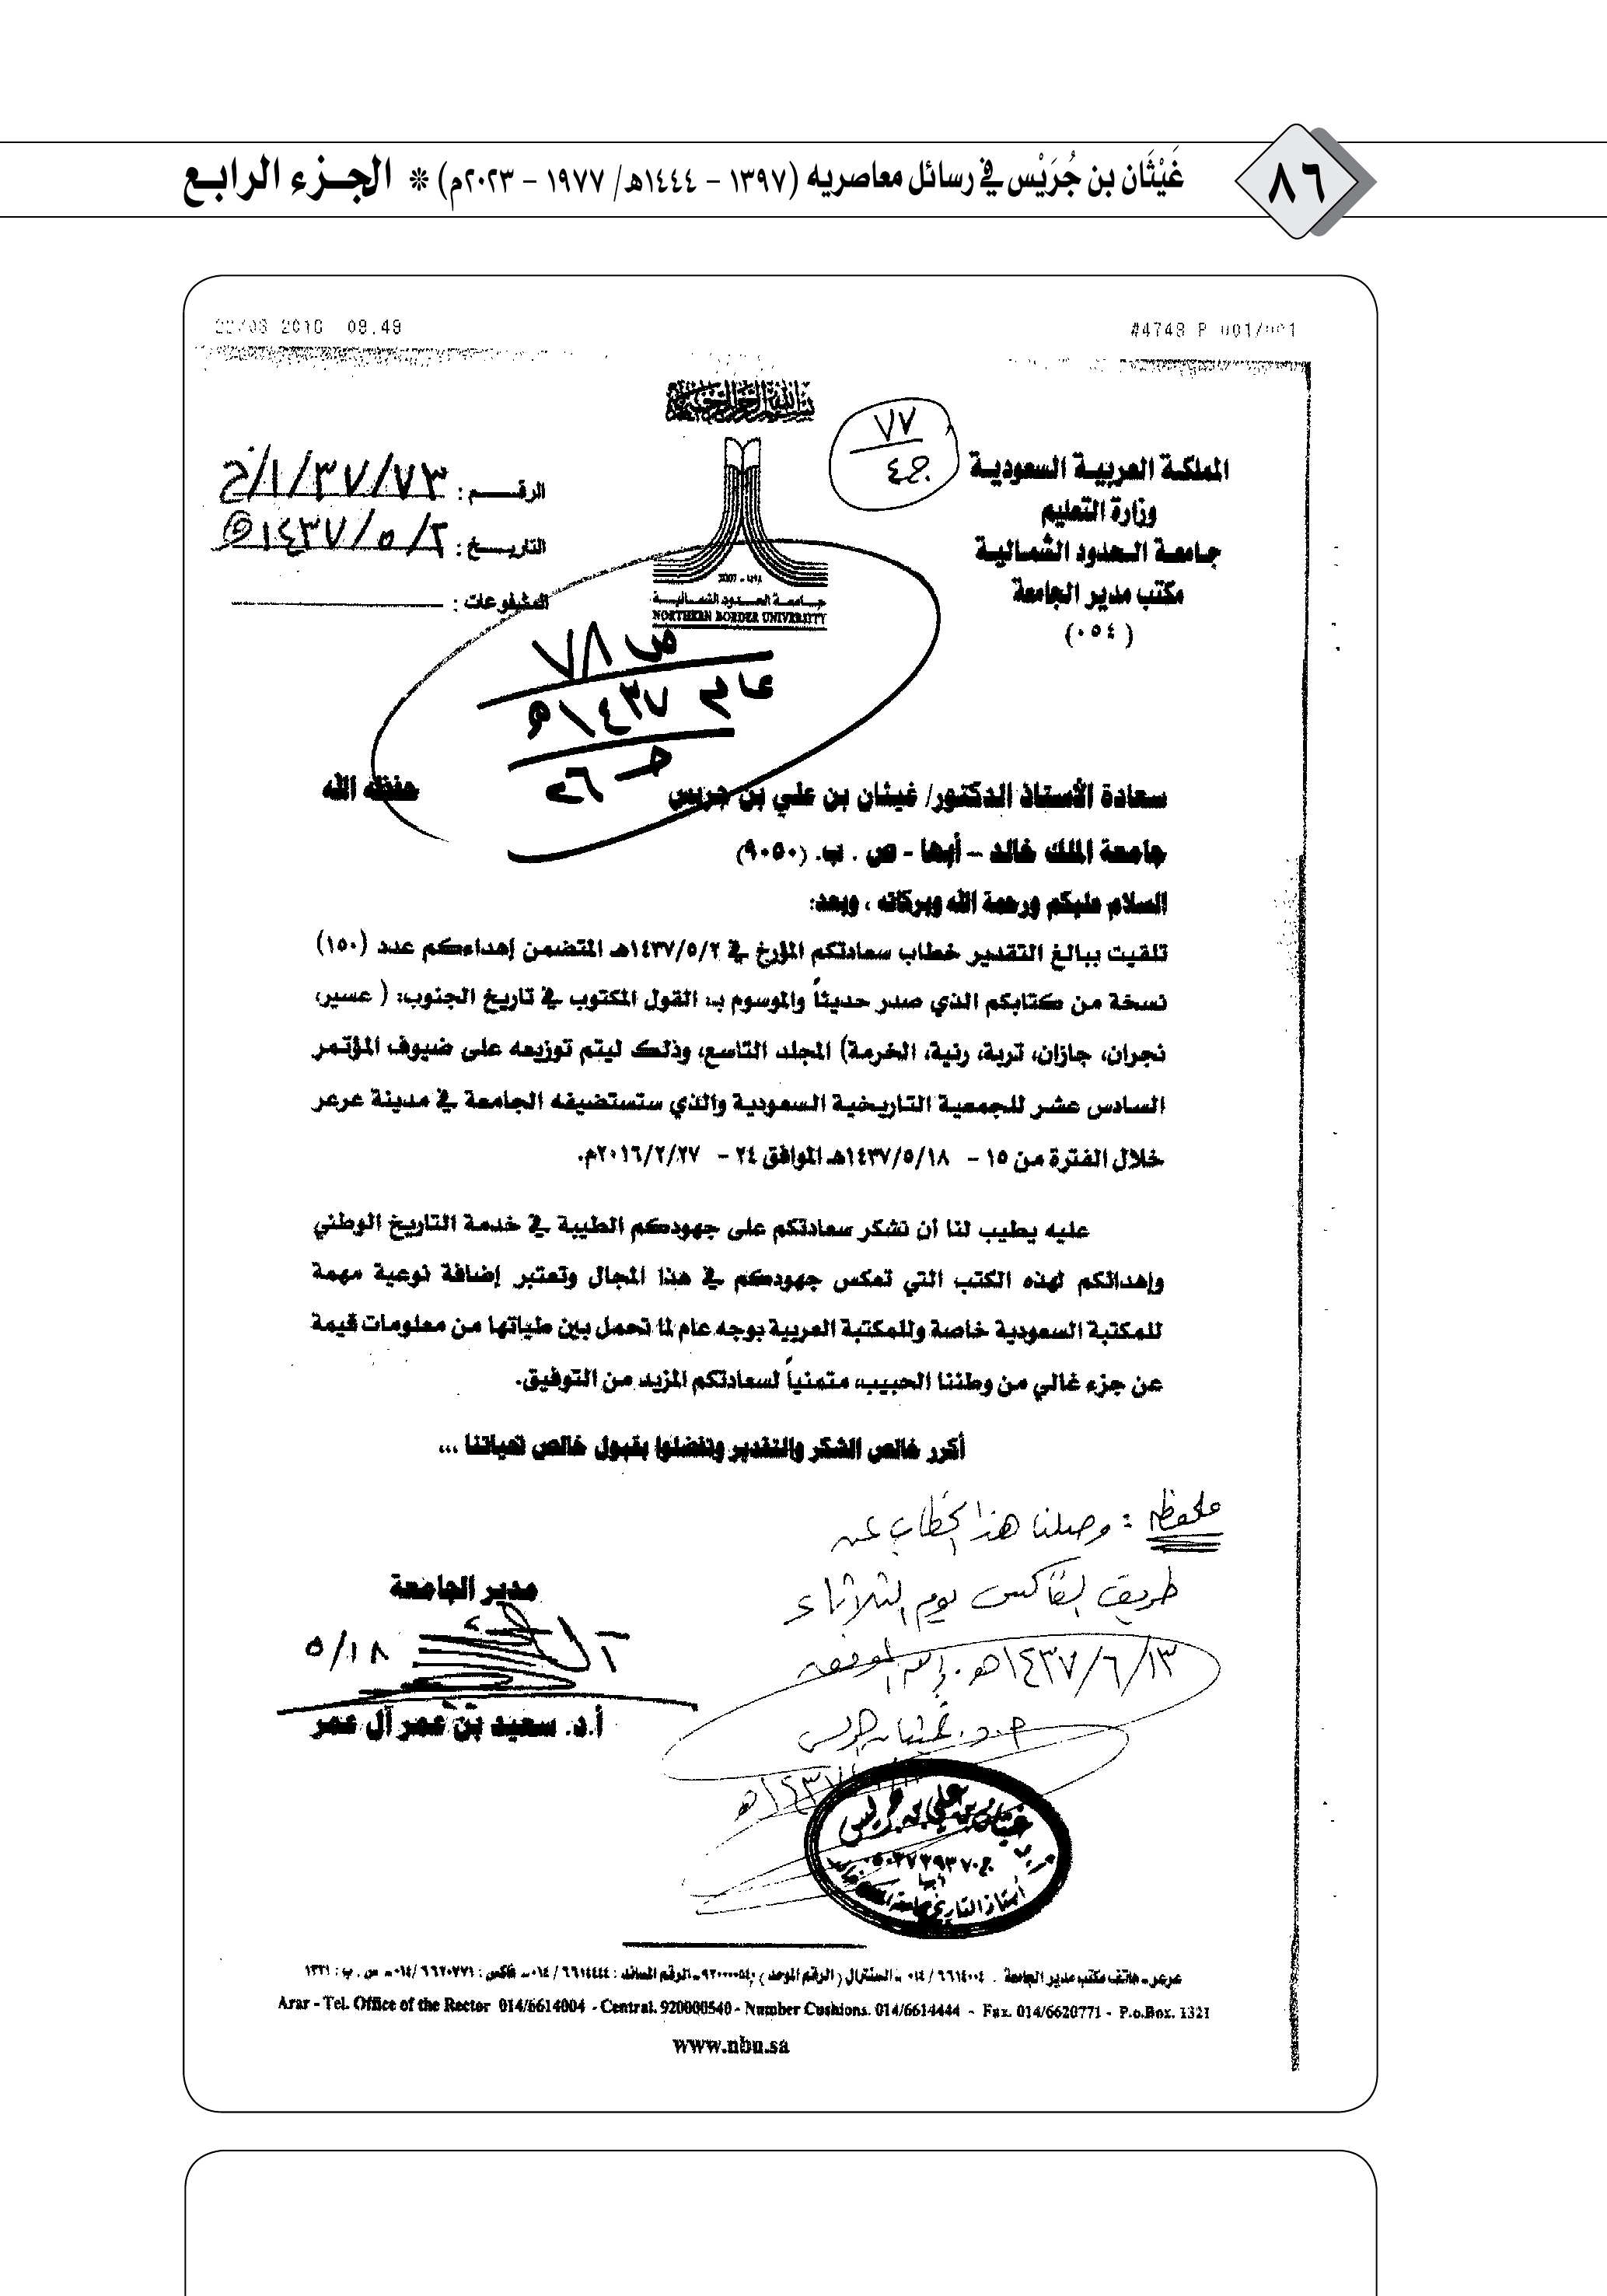 ٨٦
غَيْثَان بن جُرَيْس في رسائل معاصريه (١٣٩٧ - ١٤٤٤هـ/ ١٩٧٧ - ٢٠٢٣م) * الجزء الرابع
#4748 P 001/001
09.49
بسم الله الرحمن الرحيم
٧٧
ج٤
المملكة العربية السعودية
وزارة التعليم
جامعة الحدود الشمالية
مكتب مدير الجامعة
(٠٥٤)
جامعة الحدود الشمالية
NORTHERN BORDER UNIVERSITY
الرقم : ٧٣/٣٧/١/خ
التاريخ : ١٤٣٧/٥/٢هـ
المشفوعات :
ص ٧٨
عام ١٤٣٧هـ
سعادة الأستاذ الدكتور/ غيثان بن علي بن جريس حفظه الله
جامعة الملك خالد – أبها - ص . ب. (٩٠٥٠)
السلام عليكم ورحمة الله وبركاته ، وبعد:
تلقيت ببالغ التقدير خطاب سعادتكم المؤرخ في ١٤٣٧/٥/٢هـ المتضمن إهداءكم عدد (١٥٠)
نسخة من كتابكم الذي صدر حديثاً والموسوم بـ: القول المكتوب في تاريخ الجنوب: ( عسير،
نجران، جازان، تربة، رنية، الخرمة) المجلد التاسع، وذلك ليتم توزيعه على ضيوف المؤتمر
السادس عشر للجمعية التاريخية السعودية والذي ستستضيفه الجامعة في مدينة عرعر
خلال الفترة من ١٥ - ١٤٣٧/٥/١٨هـ الموافق ٢٤ - ٢٠١٦/٢/٢٧م.
عليه يطيب لنا أن نشكر سعادتكم على جهودكم الطيبة في خدمة التاريخ الوطني
وإهدائكم لهذه الكتب التي تعكس جهودكم في هذا المجال وتعتبر إضافة نوعية مهمة
للمكتبة السعودية خاصة وللمكتبة العربية بوجه عام لما تحمل بين طياتها من معلومات قيمة
عن جزء غالي من وطننا الحبيب، متمنياً لسعادتكم المزيد من التوفيق.
أكرر خالص الشكر والتقدير وتفضلوا بقبول خالص تحياتنا ...
ملحوظة : وصلنا هذا الخطاب عن
طريق الفاكس يوم الثلاثاء
١٤٣٧/٦/١٣هـ . والله الموفق
أ.د. غيثان بن جريس
مدير الجامعة
٥/١٨
أ.د. سعيد بن عمر آل عمر
غيثان بن علي بن جريس
أبها
أستاذ التاريخ بجامعة الملك خالد
عرعر ـ هاتف مكتب مدير الجامعة . ٠١٤/٦٦١٤٠٠٤ ـ السنترال ( الرقم الموحد ) ٩٢٠٠٠٠٥٤٠ ـ الرقم المساند : ٠١٤/٦٦١٤٤٤٤ ـ فاكس : ٠١٤/٦٦٢٠٧٧١ ـ ص . ب : ١٣٢١
Arar - Tel. Office of the Rector 014/6614004 - Central. 920000540 - Number Cushions. 014/6614444 - Fax. 014/6620771 - P.o.Box. 1321
www.nbu.sa